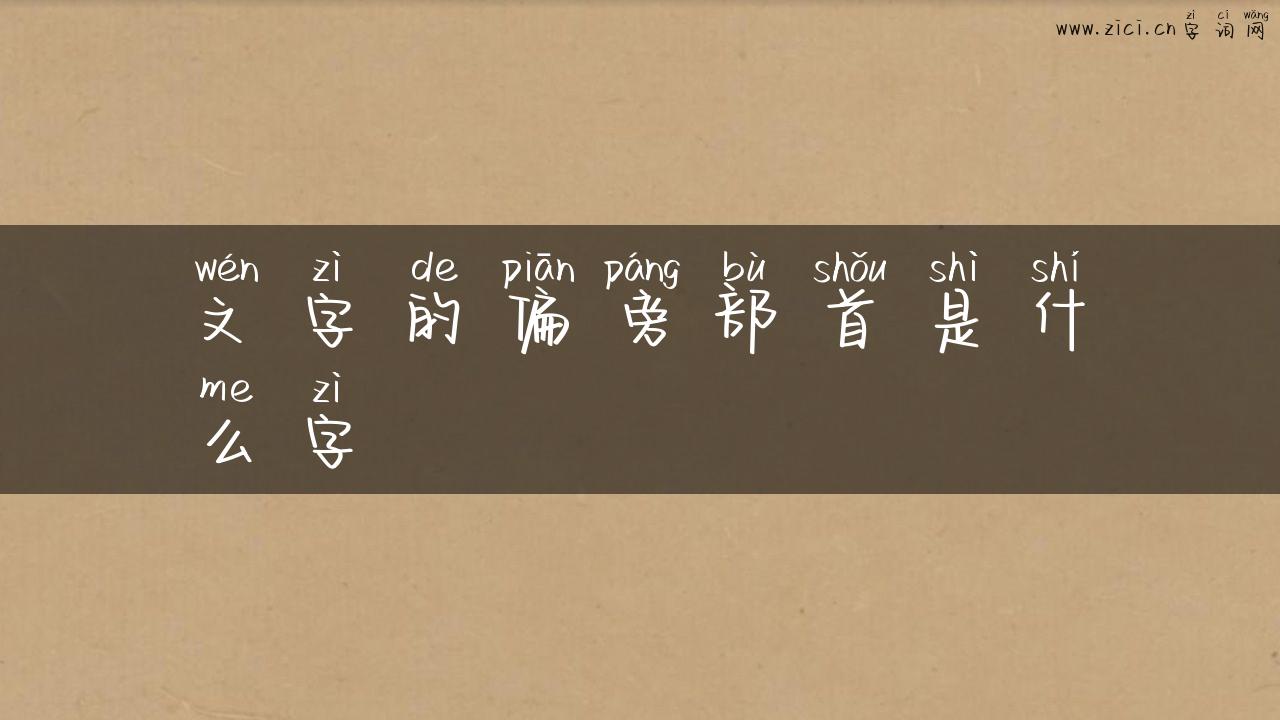 zì cí wǎng
www.zici.cn字词网
wén zì de piān páng bù shǒu shì shí
文字的偏旁部首是什
me zì
么字